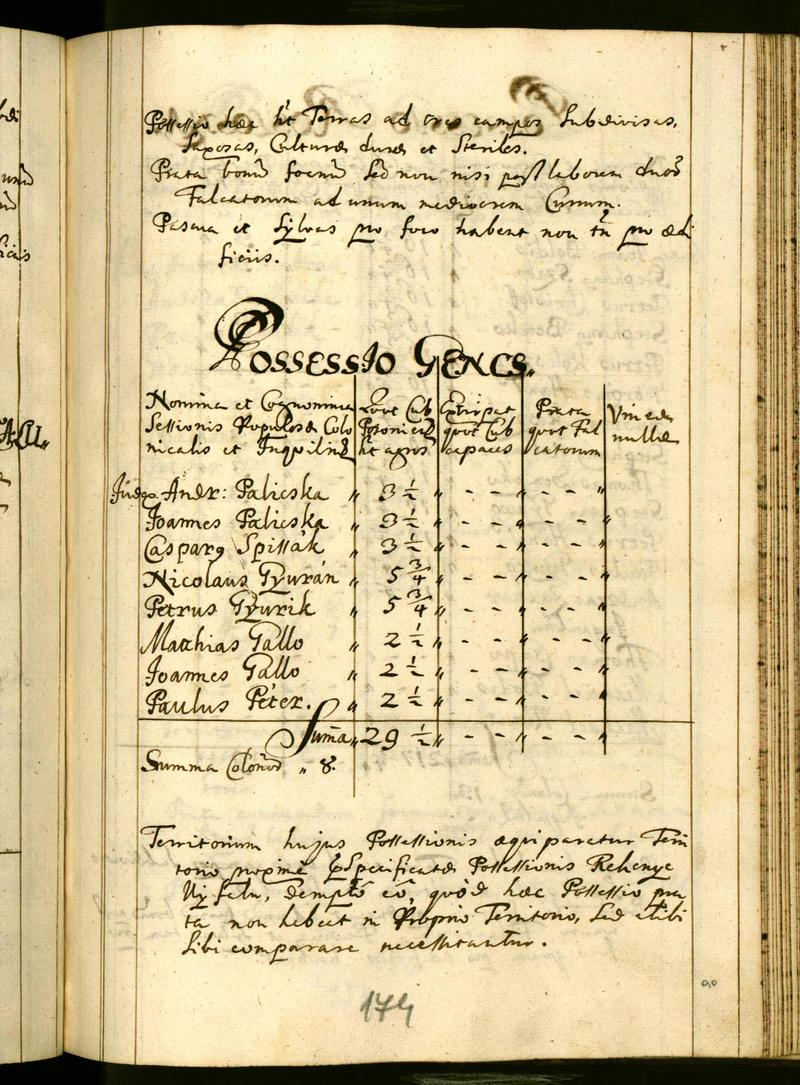 Possessio haec ht Terras ad tres campos Subdivisas,
Saxosas, Culturae durae et Steriles.
Prata bonū foenū sed non nisi post laborem duorū
Falcatorum ad unum mediocrem Currum.
Pascua et Sylvas pro foco habent non tn̄ pro aedi
ficiis.
Possessio Gencs.
Nomina et Cognomina
Sessionis Populosae Colo
nicalis et Inquilinae
Quot Cub
Posonien
ht agros
Extirpat
quot Cub
capaces
Prata
quot Fal
catorum
Vineae
nullae
Judex. Andr: Palicska " 3 1/2 " - - " - - "
Joannes Palicska " 3 1/2 " - - " - - "
Casparg Spissák " 3 1/2 " - - " - - "
Nicolaus Gyurán " 5 3/4 " - - " - - "
Petrus Gyurik " 5 3/4 " - - " - - "
Matthias Gallo " 2 1/2 " - - " - - "
Joannes Gallo " 2 1/2 " - - " - - "
Paulus Péter. " 2 1/2 " - - " - - "
Sum̄a " 29 1/2 " - - " - - "
Summa Colonorū " 8.
Territorium hujus Possessionis aequiparetur Terri
torio proximè Specificatae Possessionis Rehenye
Uj falu, demptō eō, quòd haec Possessio pra
ta non habeat in Proprio Territorio, Sed alibi
Sibi comparare necessitantur.
174